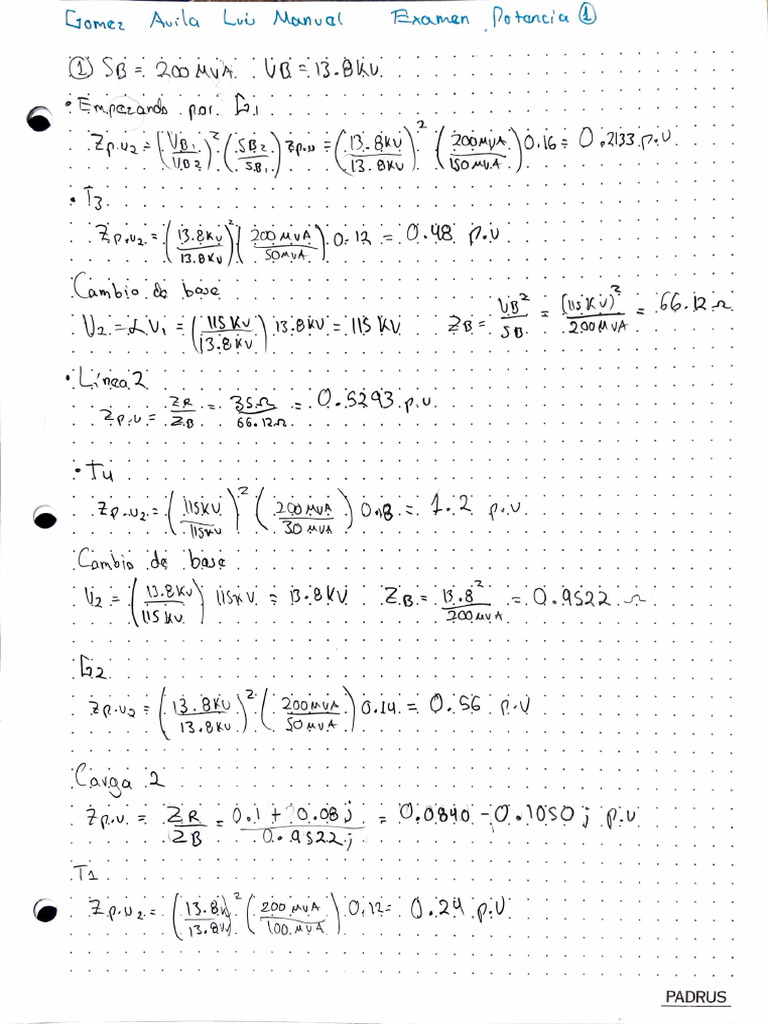 Gomez Avila Luis Manuel Examen Potencia ①
① SB = 200 MVA VB = 13.8 KV
• Empezando por G1
Zp.u2 = (VB1/VB2)² (SB2/SB1) Zp.u = (13.8KV/13.8KV)² (200MVA/150MVA) 0.16 = 0.2133 p.u
• T3
Zp.u2 = (13.8KV/13.8KV)² (200MVA/50MVA) 0.12 = 0.48 p.u
Cambio de base
V2 = αV1 = (115KV/13.8KV) 13.8KV = 115KV ZB = VB²/SB = (115KV)²/200MVA = 66.12Ω
• Línea 2
Zp.u = ZR/ZB = 35Ω/66.12Ω = 0.5293 p.u
• T4
Zp.u2 = (115KV/115KV)² (200MVA/30MVA) 0.18 = 1.2 p.u
Cambio de base
V2 = (13.8KV/115KV) 115KV = 13.8KV ZB = 13.8²/200MVA = 0.9522 Ω
G2
Zp.u2 = (13.8KV/13.8KV)² (200MVA/50MVA) 0.14 = 0.56 p.u
Carga 2
Zp.u = ZR/ZB = 0.1 + 0.08j/0.9522j = 0.0840 - 0.1050j p.u
T1
Zp.u2 = (13.8K/13.8KV)² (200MVA/100MVA) 0.12 = 0.24 p.u
PADRUS